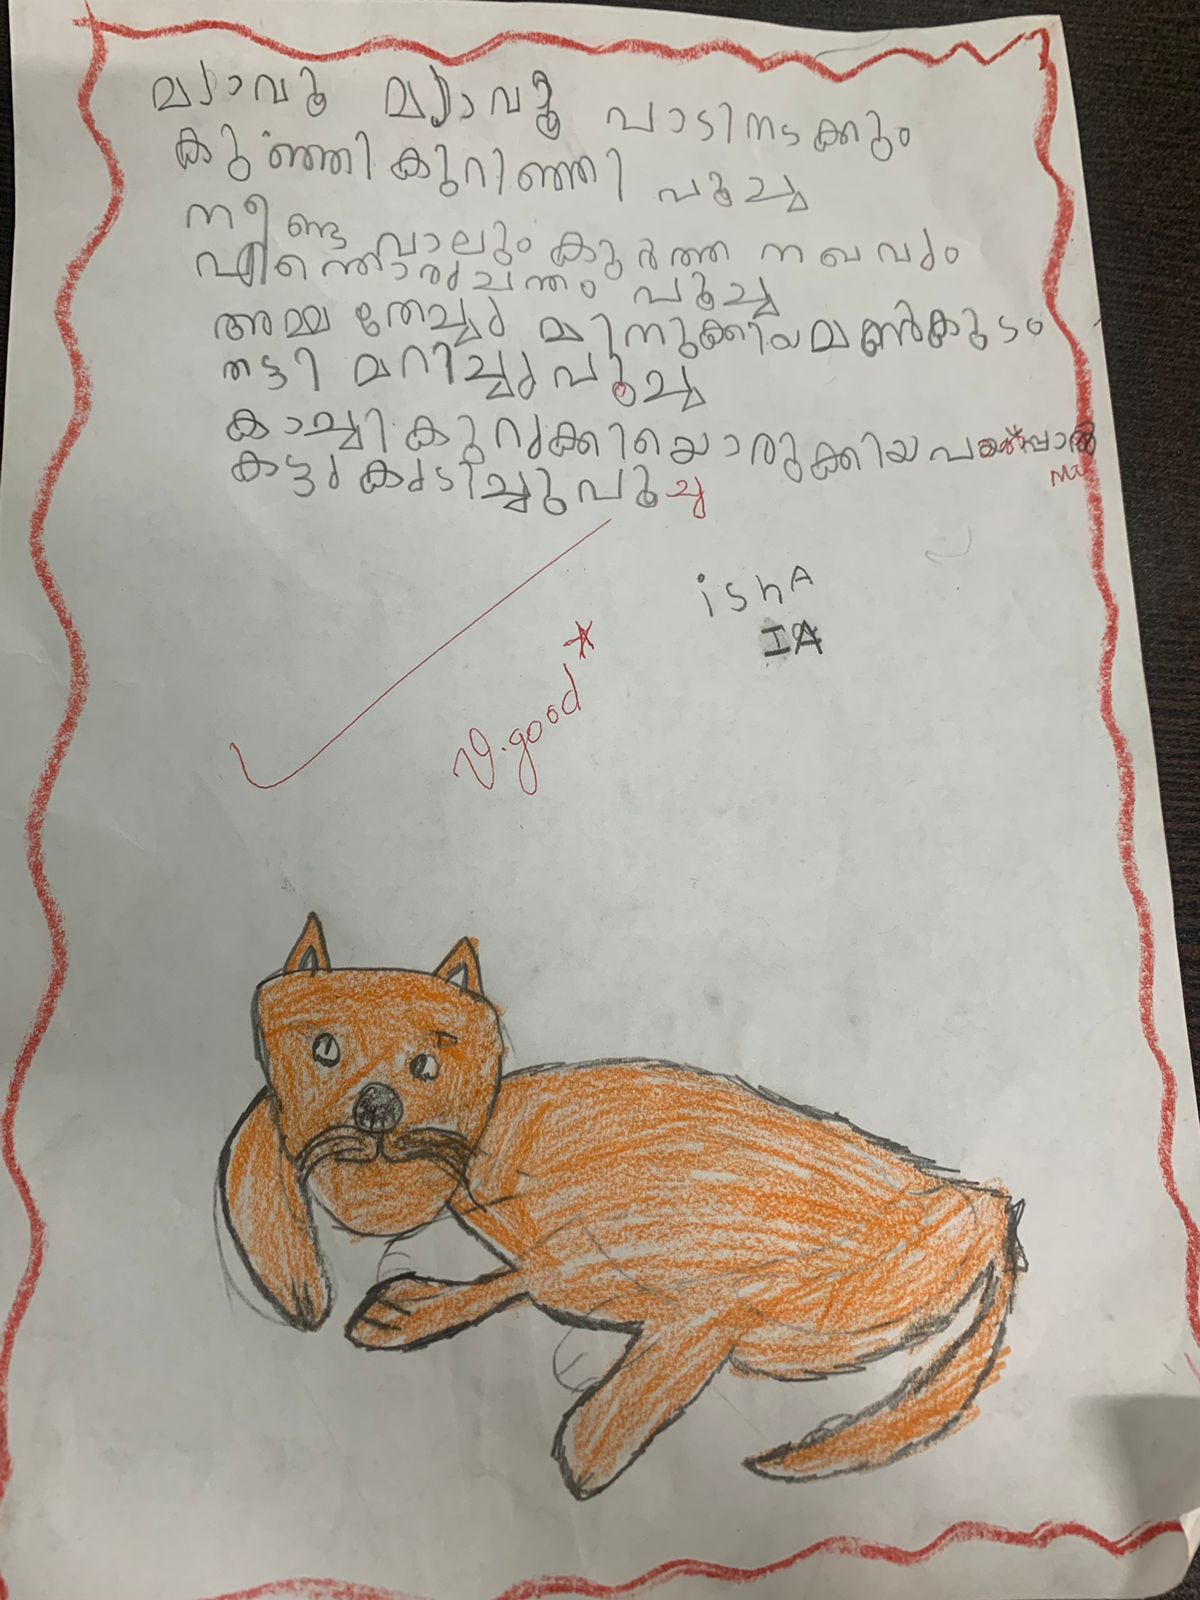 മ്യാവൂ മ്യാവൂ പാടിനടക്കും
കുഞ്ഞികുറിഞ്ഞി പൂച്ച
നീണ്ട വാലും കൂർത്ത നഖവും
എന്തൊരുചന്തം പൂച്ച
അമ്മ തേച്ചു മിനുക്കിയമൺകുടം
തട്ടി മറിച്ചു പൂച്ച
കാച്ചി കുറുക്കിയൊരുക്കിയ
കട്ടു കുടിച്ചു പൂച്ച
ishA
IA
V.good